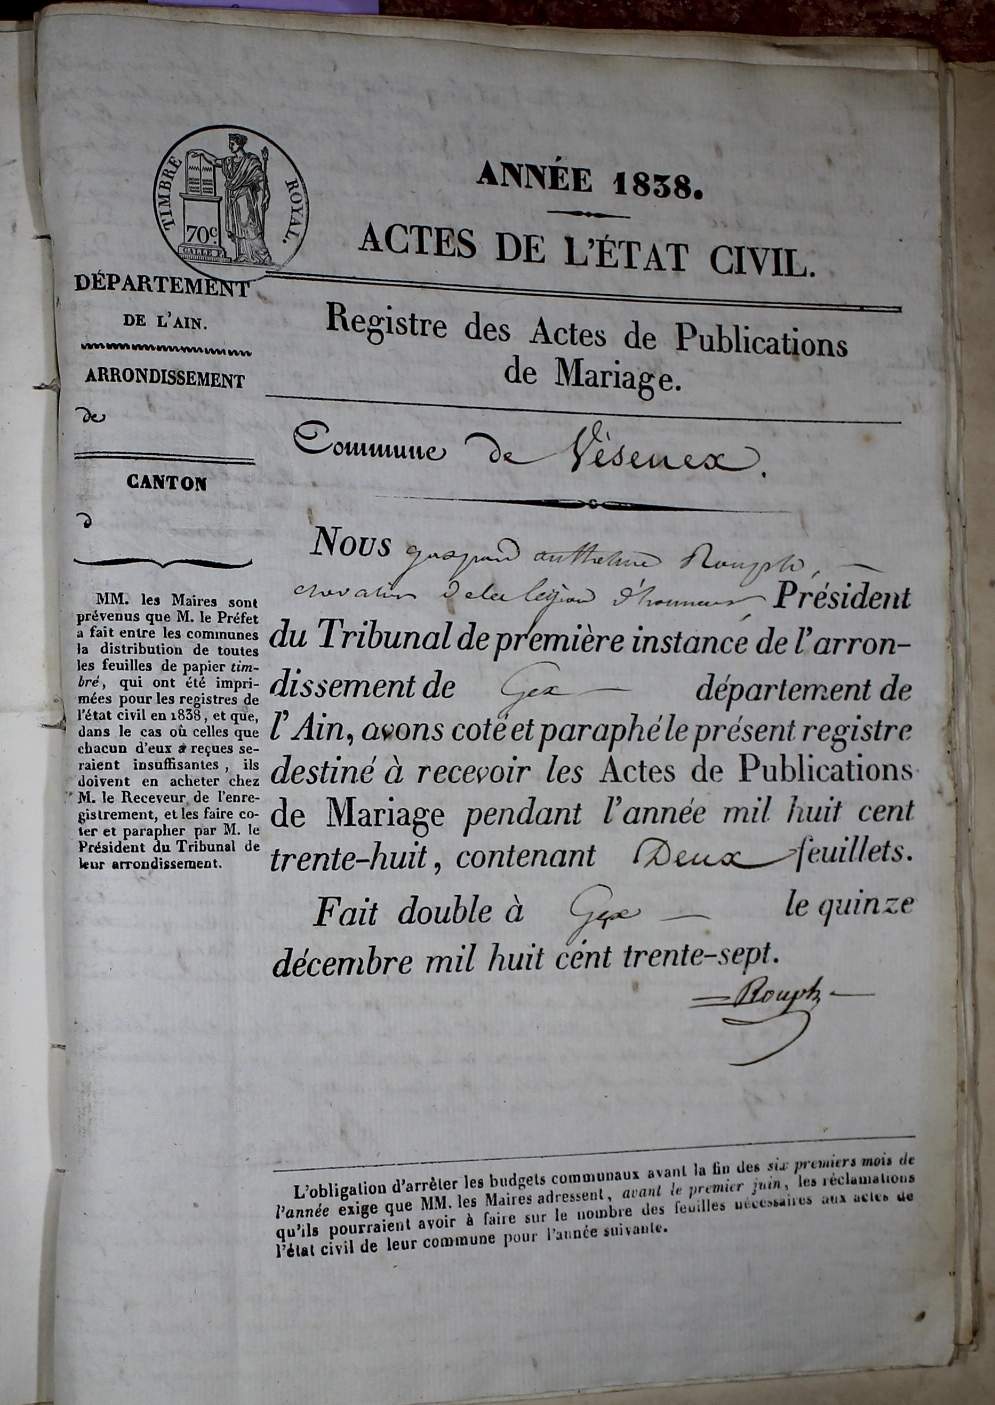 TIMBRE ROYAL.
70c
GALLE F.
ANNÉE 1838.
ACTES DE L'ÉTAT CIVIL.
DÉPARTEMENT
DE L'AIN.
ARRONDISSEMENT
de
CANTON
d
MM. les Maires sont
prévenus que M. le Préfet
a fait entre les communes
la distribution de toutes
les feuilles de papier tim-
bré, qui ont été impri-
mées pour les registres de
l'état civil en 1838, et que,
dans le cas où celles que
chacun d'eux a reçues se-
raient insuffisantes, ils
doivent en acheter chez
M. le Receveur de l'enre-
gistrement, et les faire co-
ter et parapher par M. le
Président du Tribunal de
leur arrondissement.
Registre des Actes de Publications
de Mariage.
Commune de Vésenex.
Nous gaspard anthelme Rouph,
chevalier de la légion d'honneur, Président
du Tribunal de première instance de l'arron-
dissement de Gex département de
l'Ain, avons coté et paraphé le présent registre
destiné à recevoir les Actes de Publications
de Mariage pendant l'année mil huit cent
trente-huit, contenant Deux feuillets.
Fait double à Gex le quinze
décembre mil huit cent trente-sept.
Rouph
L'obligation d'arrêter les budgets communaux avant la fin des six premiers mois de
l'année exige que MM. les Maires adressent, avant le premier juin, les réclamations
qu'ils pourraient avoir à faire sur le nombre des feuilles nécessaires aux actes de
l'état civil de leur commune pour l'année suivante.